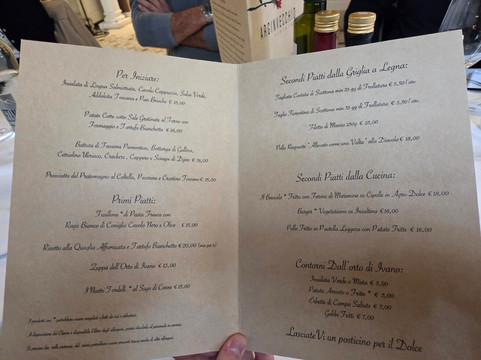 ARGINVECCHIO
Per Iniziare:
Insalata di Lingua Salmistrata, Cavolo Cappuccio, Salsa Verde,
Addobbata Toscana e Pan Brioche € 15,00
Patate Cotte sotto Sale Gratinate al Forno con
Formaggio e Tartufo Bianchetto € 16,00
Battuta di Fassona Piemontese, Bottarga di Gallina,
Cetriolino Capperi e Senape di Dijon € 16,00
Prosciutto del Pratomagno al Coltello, Pecorino e Crostino Toscano € 15,00
Primi Piatti:
Fusillone * di Pasta Fresca con
Ragù Bianco di Coniglio Cavolo Nero e Olive € 15,00
Risotto alla Quaglia Affumicata e Tartufo Bianchetto € 20,00
Zuppa dell'Orto di Ivano € 13,00
I Nostri Tordelli * al Sugo di Carne € 15,00
Secondi Piatti dalla Griglia a Legna:
Tagliata Costata di Scottona min 25 gg di Frollatura € 5,50
Taglio Fiorentina di Scottona min 25 gg di Frollatura € 5,50
Filetto di Manzo 250g € 25,00
Pollo Ruspante "Allevato come una Volta" alla Diavola € 18,00
Secondi Piatti dalla Cucina:
Il Baccalà * Fritto con Farina di Maiorana su Cipolla in Agro Dolce € 18,00
Burger * Vegetariano su Insalatina € 16,00
Pollo Fritto in Pastella Leggera con Patate Fritte € 16,00
Contorni Dall'orto di Ivano:
Insalata Verde o Mista € 5,00
Patate Arrosto o Fritte * € 5,00
Erbette di Campo Saltate € 7,00
Gobbi Fritti € 7,00
LasciateVi un posticino per il Dolce